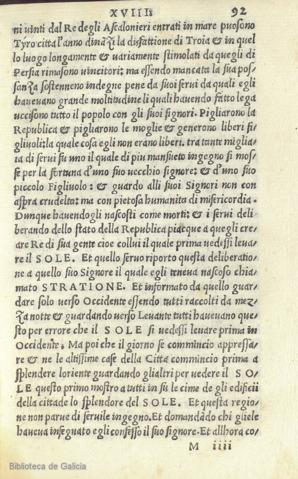 XVIII 92
ni vinti dal Re degli Ascalonieri entrati in mare puesono
Tyro citta l'anno dinãzi la disfattione di Troia & in quel
lo luogo longamente & variamente stimolati da quegli di
Persia rimasono vincitori; ma essendo mancata la sua pos
sanza sostenneno indegne pene da suoi servi da quali egli
havevano grande moltitudine li quali havendo fatto lega
uccisono tutto il popolo con gli suoi signori. Pigliarono la
Republica & pigliarono le moglie & generono liberi fi
gliuoli: la quale cosa egli non erano liberi. tra tante miglia
ia di servi fu uno il quale di piu mansueto ingegno si mos
se per la fortuna d'uno suo vecchio signore: & d'uno suo
piccolo Figliuolo: & guardo alli suoi Signori non con
aspra crudelta: ma con pietosa humanita di misericordia.
Dunque havendogli nascosti come morti: & i servi deli
berando dello stato della Republica piacque a quegli cre
are Re di sua gente cioe collui il quale prima vedessi leva
re il SOLE. Et quello servo riporto questa deliberatio
ne a quello suo Signore il quale egli teneva nascoso chia
mato STRATIONE. Et informato da quello guar
dare solo verso Occidente essendo tutti raccolti da mez
za notte & guardando verso Levante tutti havevano que
sto per errore che il SOLE si vedessi levare prima in
Occidente. Ma poi che il giorno se comminciò appressa
re & ne le altissime case della Citta commincio prima a
splendere loriente guardando glialtri per vedere il SO
LE questo primo mostro a tutti in su le cime de gli edificii
della cittade lo splendore del SOLE. Et questa regio
ne non parve di servile ingegno. Et domandãdo chi gliele
haveva insegnato egli confesso il suo signore. Et allhora co
M iiii
Biblioteca de Galicia